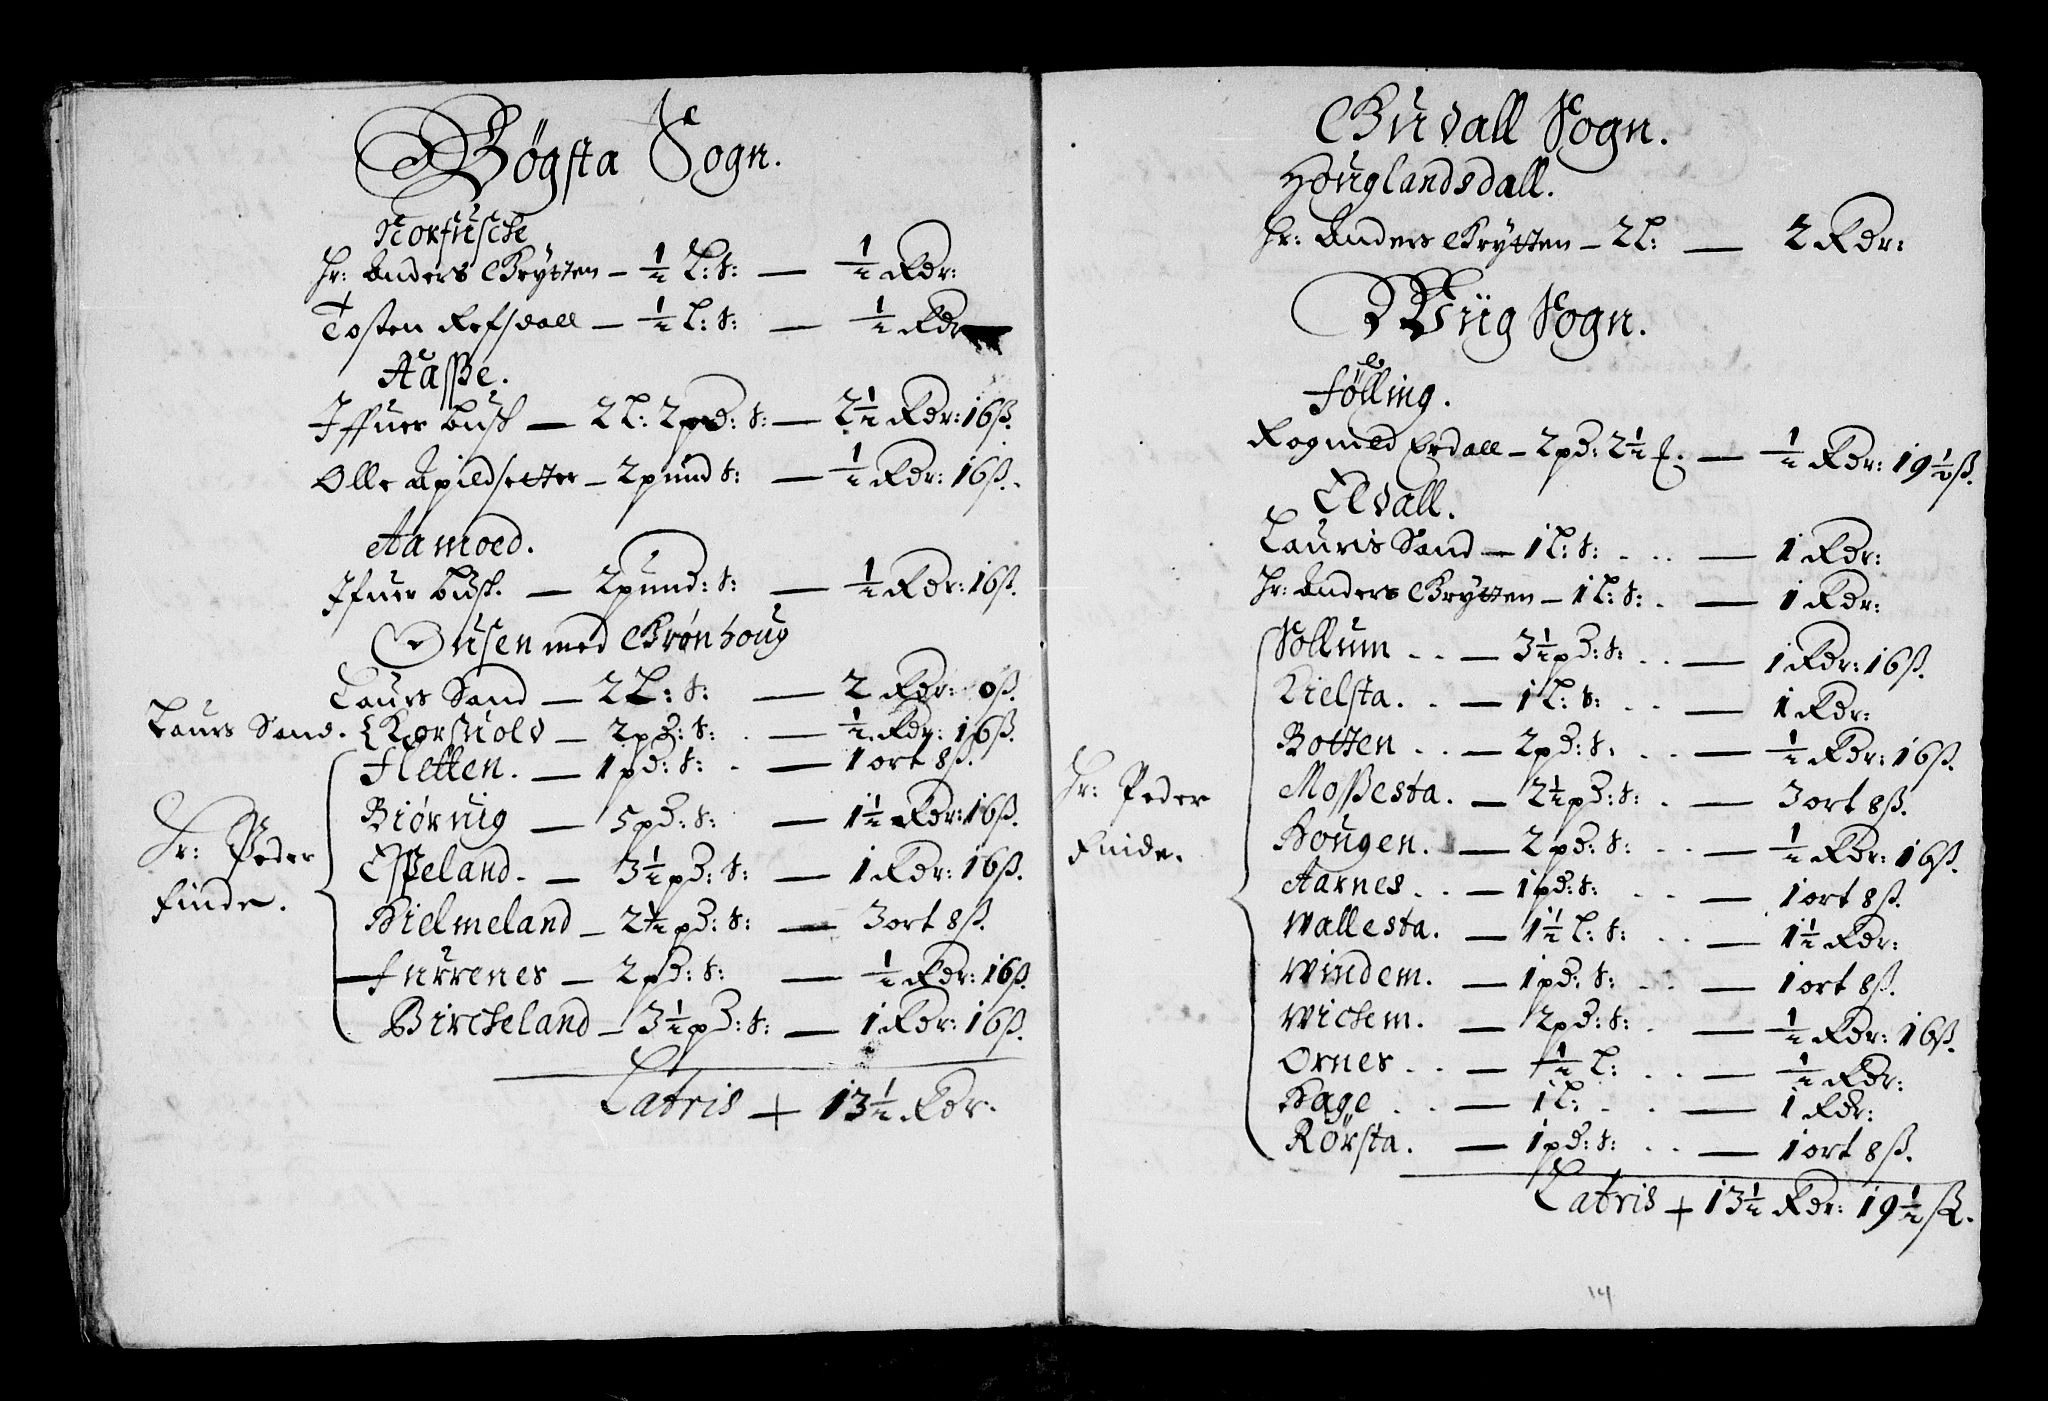 Bøgsta Sogn.
Norfusche
Hr: Anders Grytten – ½ L: S: — ½ Rdr:
Tosten Refsdall – ½ L: S: — ½ Rdr
Aasße.
Iffuer Busk — 2 L: 2 pd: S: — 2½ Rdr: 16 ß.
Olle Apildsetter – 2 pund S: — ½ Rdr: 16 ß.
Aamoed.
Ifuer Busk. — 2 pund: S: — ½ Rdr: 16 ß.
Ousen med Grønhoug
Laurs Sand — 2 L: S: — 2 Rdr: 0 ß.
Laurs Sand. { Korsuold – 2 pd: S: — ½ Rdr: 16 ß.
Fletten. — 1 pd: S: — 1 ort 8 ß.
Biørnig — 5 pd: S: — 1½ Rdr: 16 ß.
Hr: Peder Finde.
Espeland. — 3½ pd: S: — 1 Rdr: 16 ß.
Hielmeland – 2½ pd: S: — 3 ort 8 ß.
Furrenes – 2 pd: S: — ½ Rdr: 16 ß.
Bircheland – 3½ pd: S: — 1 Rdr: 16 ß.
Latris + 13½ Rdr.
Gudall Sogn.
Houglandsdall.
Hr: Anders Grytten – 2 L: — 2 Rdr:
Wiig Sogn.
Følling.
Rogmeld Erdall – 2 pd: 2½ — ½ Rdr: 19½ ß.
Elvall.
Lauris Sand — 1 L: S: — 1 Rdr:
Hr: Anders Grytten – 1 L: S: — 1 Rdr:
Sollum — 3½ pd: S: — 1 Rdr: 16 ß.
Kielsta. — 1 L: S: — 1 Rdr:
Botten — 2 pd: S: — ½ Rdr: 16 ß.
Hr: Peder
Mosßesta. — 2½ pd: S: — 3 ort 8 ß.
Finde.
Hougen. — 2 pd: S: — ½ Rdr: 16 ß.
Aarnes — 1 pd: S: — 1 ort 8 ß.
Wallesta. — 1½ L: S: — 1½ Rdr:
Windem. — 1 pd: S: — 1 ort 8 ß.
Wichem. — 2 pd: S: — ½ Rdr: 16 ß.
Ornes — ½ L: — ½ Rdr:
Hage — 1 L: — 1 Rdr:
Rørsta. — 1 pd: S: — 1 ort 8 ß.
Latris + 13½ Rdr: 19½ ß.
14